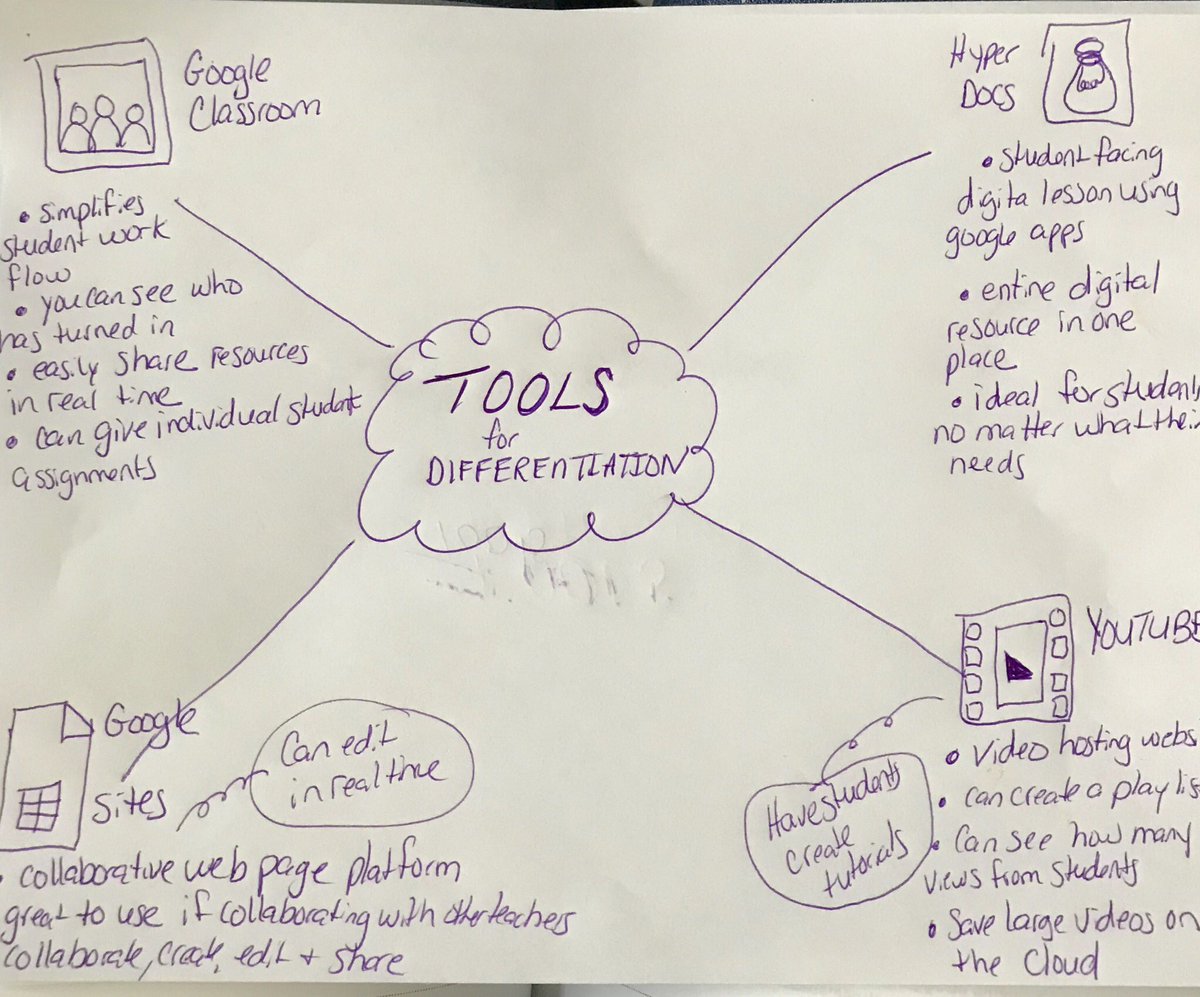 Google
Classroom
• simplifies
student work
flow
• you can see who
has turned in
• easily share resources
in real time
• can give individual student
assignments
Hyper
Docs
• student facing
digita lesson using
google apps
• entire digital
resource in one
place
• ideal for students
no matter what their
needs
TOOLS
for
DIFFERENTIATION
Google
Sites
Can edit
in real time
• collaborative web page platform
great to use if collaborating with other teachers
collaborate, create, edit + share
YOUTUBE
• Video hosting webs
• can create a play lis
• Can see how many
views from students
• Save large videos on
the Cloud
Have students
create
tutorials